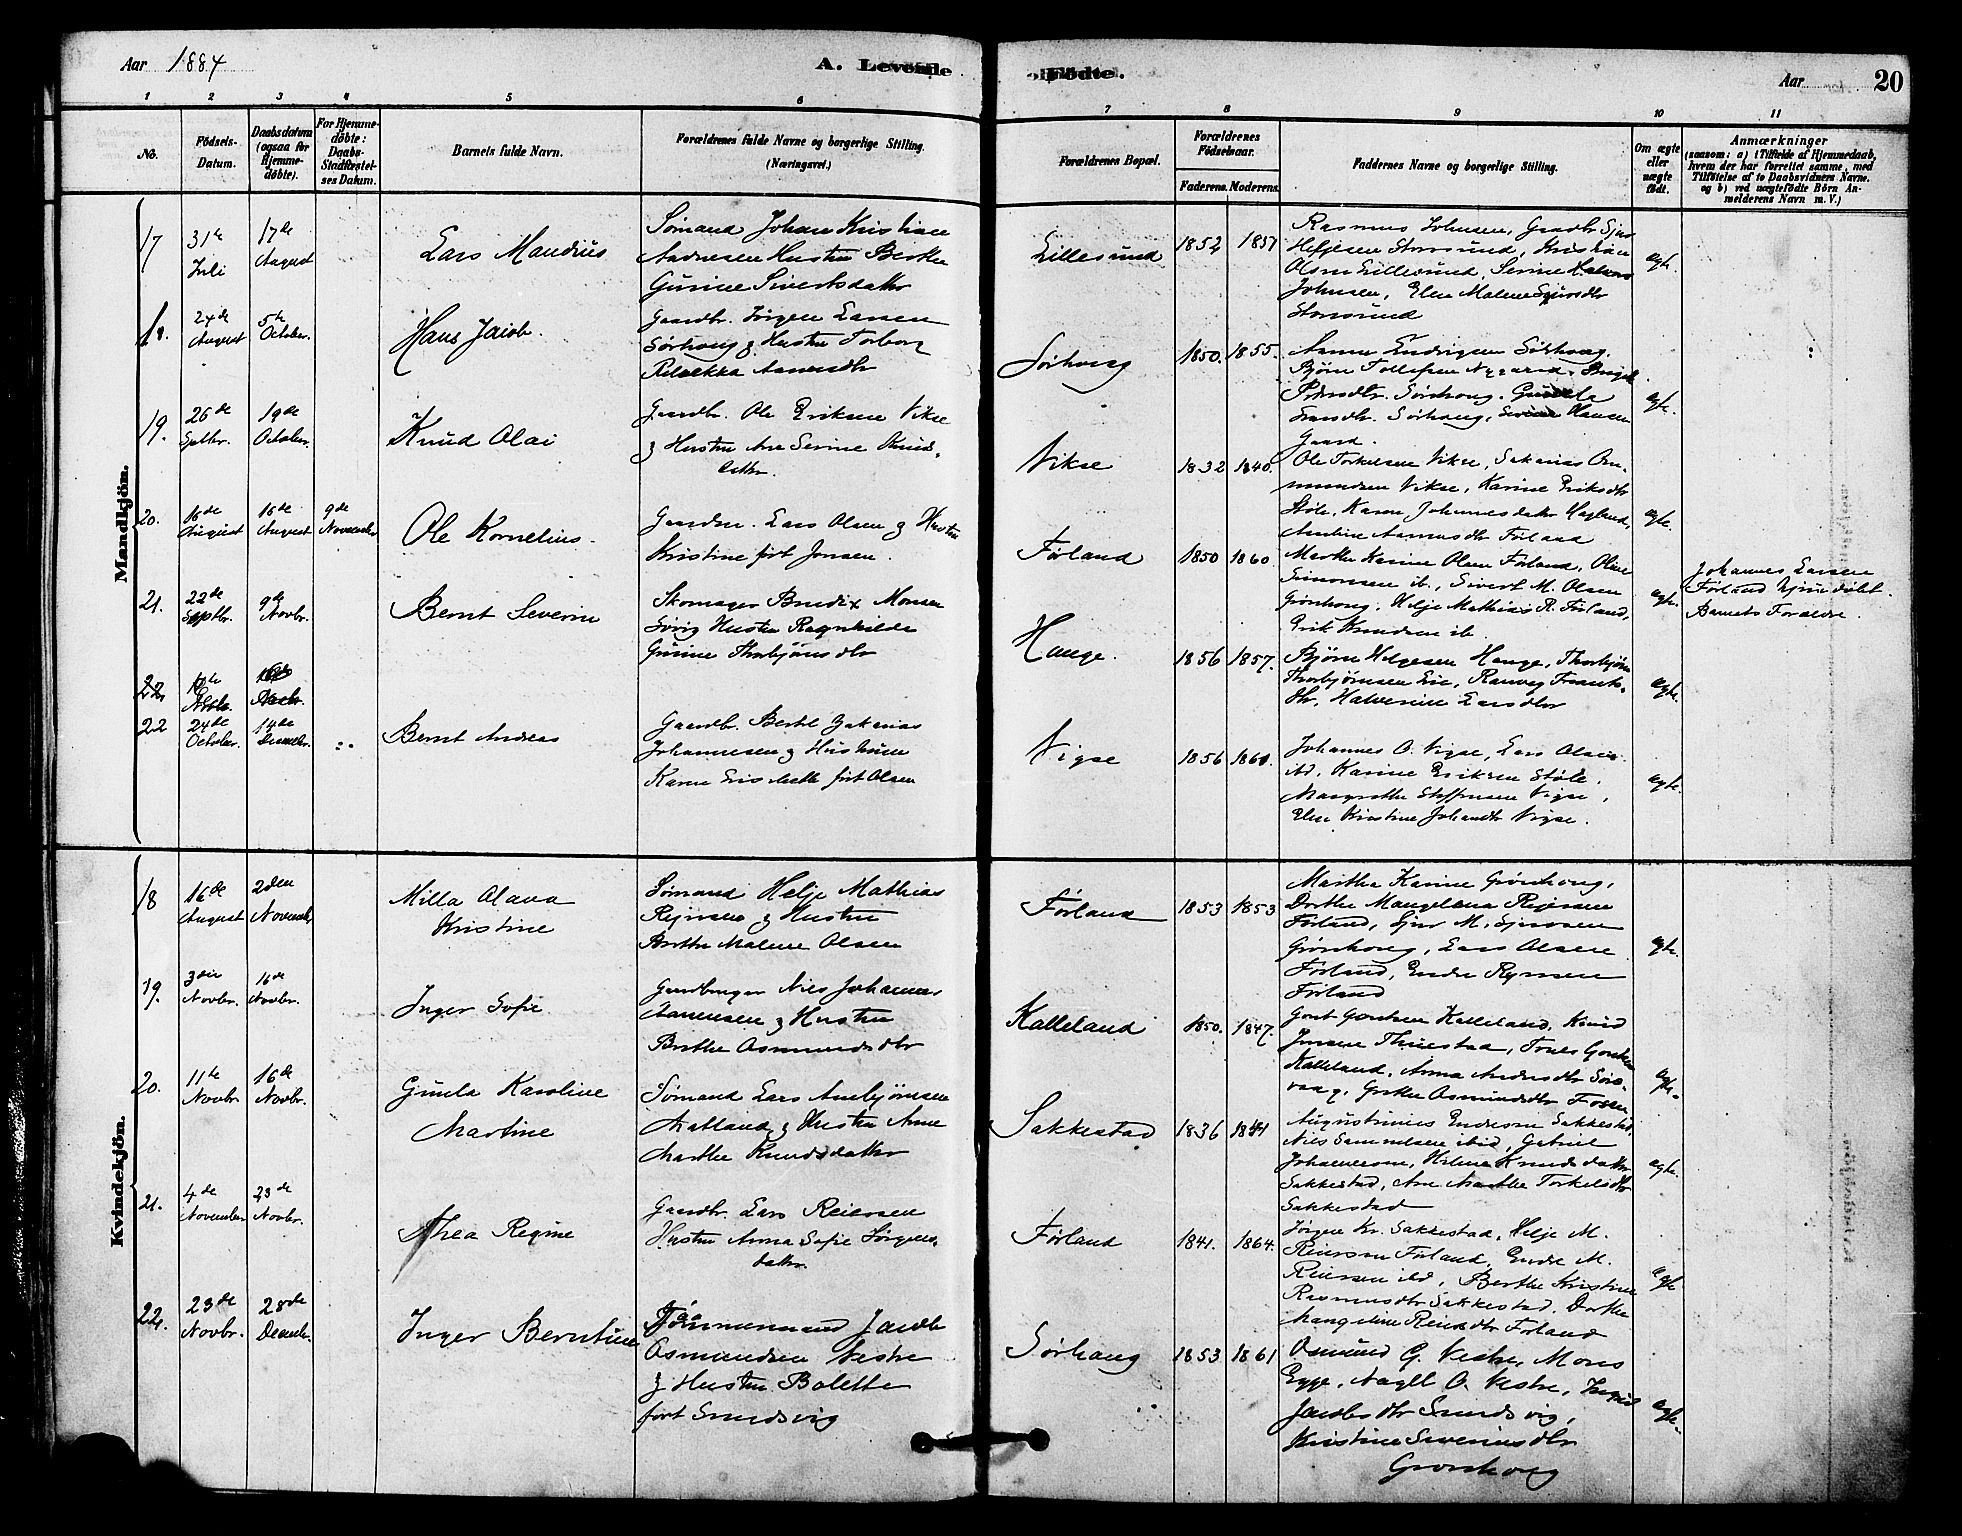 Aar 1884
A. Levende
Fødte.
Aar
20
1 2 3 4 5 6 7 8 9 10 11
No.
Fødsels-
Datum.
Daabsdatum
(ogsaa for
Hjemme-
døbte).
For Hjemme-
døbte:
Daabs-
Stadfæstel-
ses Datum.
Barnets fulde Navn.
Forældrenes fulde Navne og borgerlige Stilling.
(Næringsvei.)
Forældrenes Bopæl.
Forældrenes
Fødselsaar.
Faderens. Moderens.
Faddernes Navne og borgerlige Stilling.
Om ægte
eller
uægte
født.
Anmærkninger
(saasom: a) i Tilfælde af Hjemmedaab,
hvem der har forrettet samme, med
Tilføielse af to Daabsvidners Navne.
og b) ved uægtefødte Børn An-
melderens Navn m. V.)
Mandkjön.
17
31te
Juli
17de
August
Lars Maudius
Sømand Johan Kristian
Andreasen Hustru Berthe
Gurine Sivertsdatter
Lillesund
1852 1857
Rasmus Johnsen, Gaardbr Sjur
Helgesen Storesund, Kristian
Olsen Lillesund, Serine
Johnsen, Elen Malene Sjursdtr
Storesund
egte.
18.
24de
August
5te
October.
Hans Jacob.
Gaardbr. Jørgen Larsen
Sørhoug & Hustru Torborg
Rebekka Aanensdtr
Sørhoug
1850. 1855.
Endresen Sørhoug.
Bjørn Tollefsen Nygaard,
Sørhoug. Gunele
Sørhoug, Hansen
Gaard.
egte.
19.
26de
Septbr.
19de
October.
Knud Olai
Gaardbr. Ole Eriksen Vikse
& Hustru Ane Serine Knuds-
datter.
Vikse
1832 1840.
Ole Torkelsen Vikse, Sakarias Om-
mundsen Vikse, Karine Eriksdtr
Støle, Karen Johannesdatter Hagland,
Aasmusdtr Førland
egte.
20.
16de
August
16de
August
9de
November
Ole Kornelius.
Gaardbr. Lars Olsen & Hustru
Kristine født Jonsen.
Førland
1850 1860.
Marthe Karine Olsen Førland, Oline
Simonsen ib., Sivert M. Olsen
Grønhoug, Helje Mathias R. Førland,
Erik Knudsen ib.
egte.
Johannes Larsen
Førland hjemdøbt.
Barnets Forældre.
21.
22de
Septbr.
9de
Novbr.
Bernt Severin
Skomager Bendix Monsen
Søvig Hustru Ragnhilde
Gurine Thorbjørnsdtr
Hauge.
1856 1857.
Bjørn Helgesen Hauge, Thorbjørn
Thorbjørnsen Lie, Ranveg
dtr, Halverine Larsdtr
egte.
22
22
24de
October.
14de
Decembr.
Bernt Andreas
Gaardbr. Bertel Zakarias
Johannesen & Hustruen
Karen Lisebeth født Olsen
Vigse
1856 1860.
Johannes O. Vigse, Lars Olsen
ibd, Karine Eriksen Støle,
Margrethe Steffensen Vigse,
Elen Kristine Johansdtr Vigse.
egte.
Kvindekjön.
18
16de
August
2den
November
Milla Olava
Kristine
Sømand Helje Mathias
Reiersen & Hustru
Berthe Malene Olsen
Førland
1853 1853
Marthe Karine Grønhoug,
Dorthe Mangelena Reiersen
Førland, Sjur M. Sjursen
Grønhoug, Lars Olsen
Førland, Endre Reiersen
Førland
egte.
19.
3die
Novbr.
16de
Novbr.
Inger Sofie
Gaardbruger Nils Johannes
Aanensen & Hustru
Berthe Osmundsdtr
Kalleland
1850. 1847.
Gont Gontsen Kalleland, Knud
Jonsen Thuestad, Truls Gontsen
Kalleland, Anna Andersdtr Søre-
vaag, Grethe Osmundsdtr Fosen
egte.
20.
11te
Novbr
16de
Novbr.
Gunla Karoline
Martine
Sømand Lars Anbjørnsen
Matland & Hustru Anne
Marthe Knudsdatter
Sakkestad
1836 1841
Augustinus Endresen Sakkestad,
Nils Sammelsen ibid, Gabriel
Johannesen, Helene Knudsdatter
Sakkestad, Ane Marthe Torkelsdtr
Sakkestad
egte.
21.
4de
November
23de
Novbr.
Thea Regine
Gaardbr. Lars Reiersen
Hustru Anna Sofie Jørgens-
datter.
Førland
1841. 1864.
Jørgen Kr. Sakkestad, Helje M.
Reiersen Førland, Endre M.
Reiersen ibd, Berthe Kristine
Rasmusdtr Sakkestad, Dorthe
Mangeline Reiersdtr Førland
egte
22.
23de
Novbr.
28de
Decembr.
Inger Berntine
Tømmermand Jacob
Osmundsen Vestre
& Hustru Bolette
født Sundsvig
Sørhaug
1853. 1861
Osmund G. Vestre, Mons
Egge, O. Vestre, Ingrid
Jacobsdtr Sundsvig,
Kristine Severinsdtr
Grønhoug
egte.